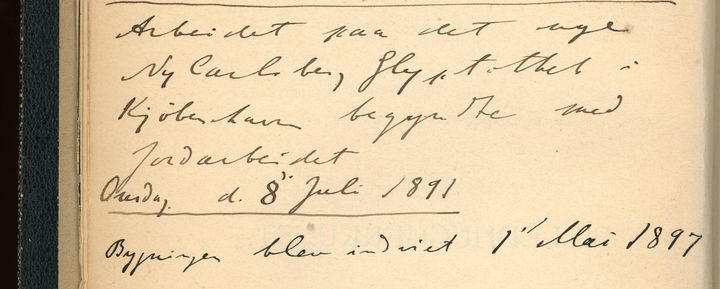 Arbeidet paa det nye
Ny Carlsberg Glyptothek i
Kjøbenhavn begyndte med
Jordarbeidet
Onsdag d. 8de Juli 1891
Bygningen blev indviet 1st Mai 1897